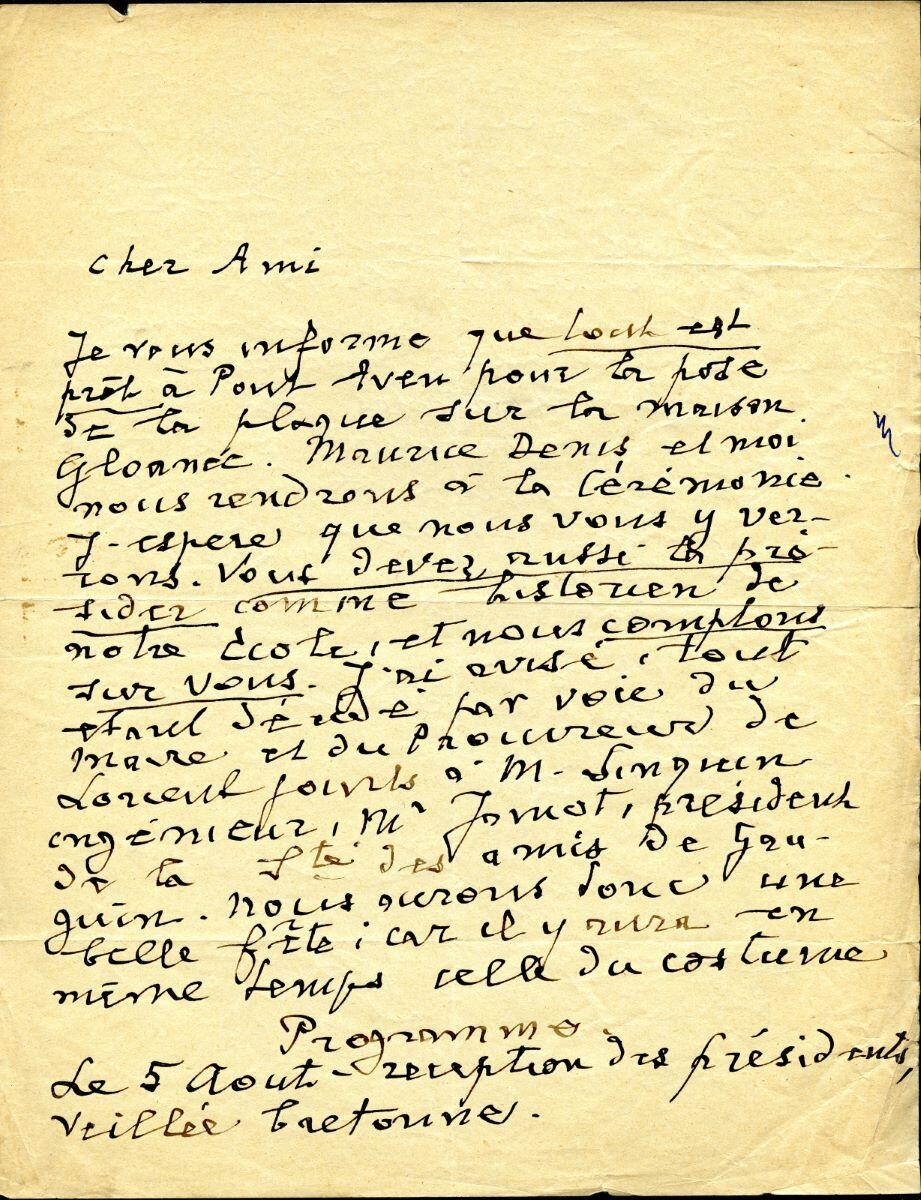 cher Ami
Je vous informe que tout est
prêt à Pont Aven pour la pose
de la plaque sur la maison
Gloanec. Maurice Denis et moi
nous rendrons à la Cérémonie.
J'espere que nous vous y ver-
rons. Vous devez aussi la pré-
sider comme historien de
notre École, et nous comptons
sur vous. J'ai avisé, tout
etant décidé par voie du
Maire et du Procureur de
Lorient
ingénieur, Mr Jamot, président
de la Sté des amis de Gau-
guin. Nous aurons donc une
belle fête ; car il y aura en
même temps celle du costume
Programme.
Le 5 Aout - reception des présidents,
Veillée bretonne.